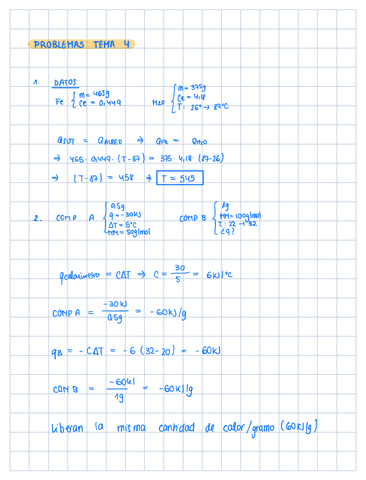 PROBLEMAS TEMA 4
1. DATOS
Fe { m = 465g
Ce = 0,449
H2O { m = 375g
Ce = 4,18
T: 26° → 87°C
QSUT = QALREDO → QFE = QH2O
→ 465 · 0,449 · (T-87) = 375 · 4,18 · (87-26)
→ (T-87) = 458 → T = 545
2. COMP A { 0,5g
q = -30KJ
ΔT = 5°C
MM = 50g/mol
COMP B { 1g
MM = 100g/mol
T: 22 → 32
¿q?
qcalorímetro = CΔT → C = 30/5 = 6KJ/°C
COMP A = -30KJ/0,5g = -60KJ/g
qB = -CΔT = -6 (32-20) = -60KJ
COM B = -60KJ/1g = -60KJ/g
Liberan la misma cantidad de calor/gramo (60KJ/g)